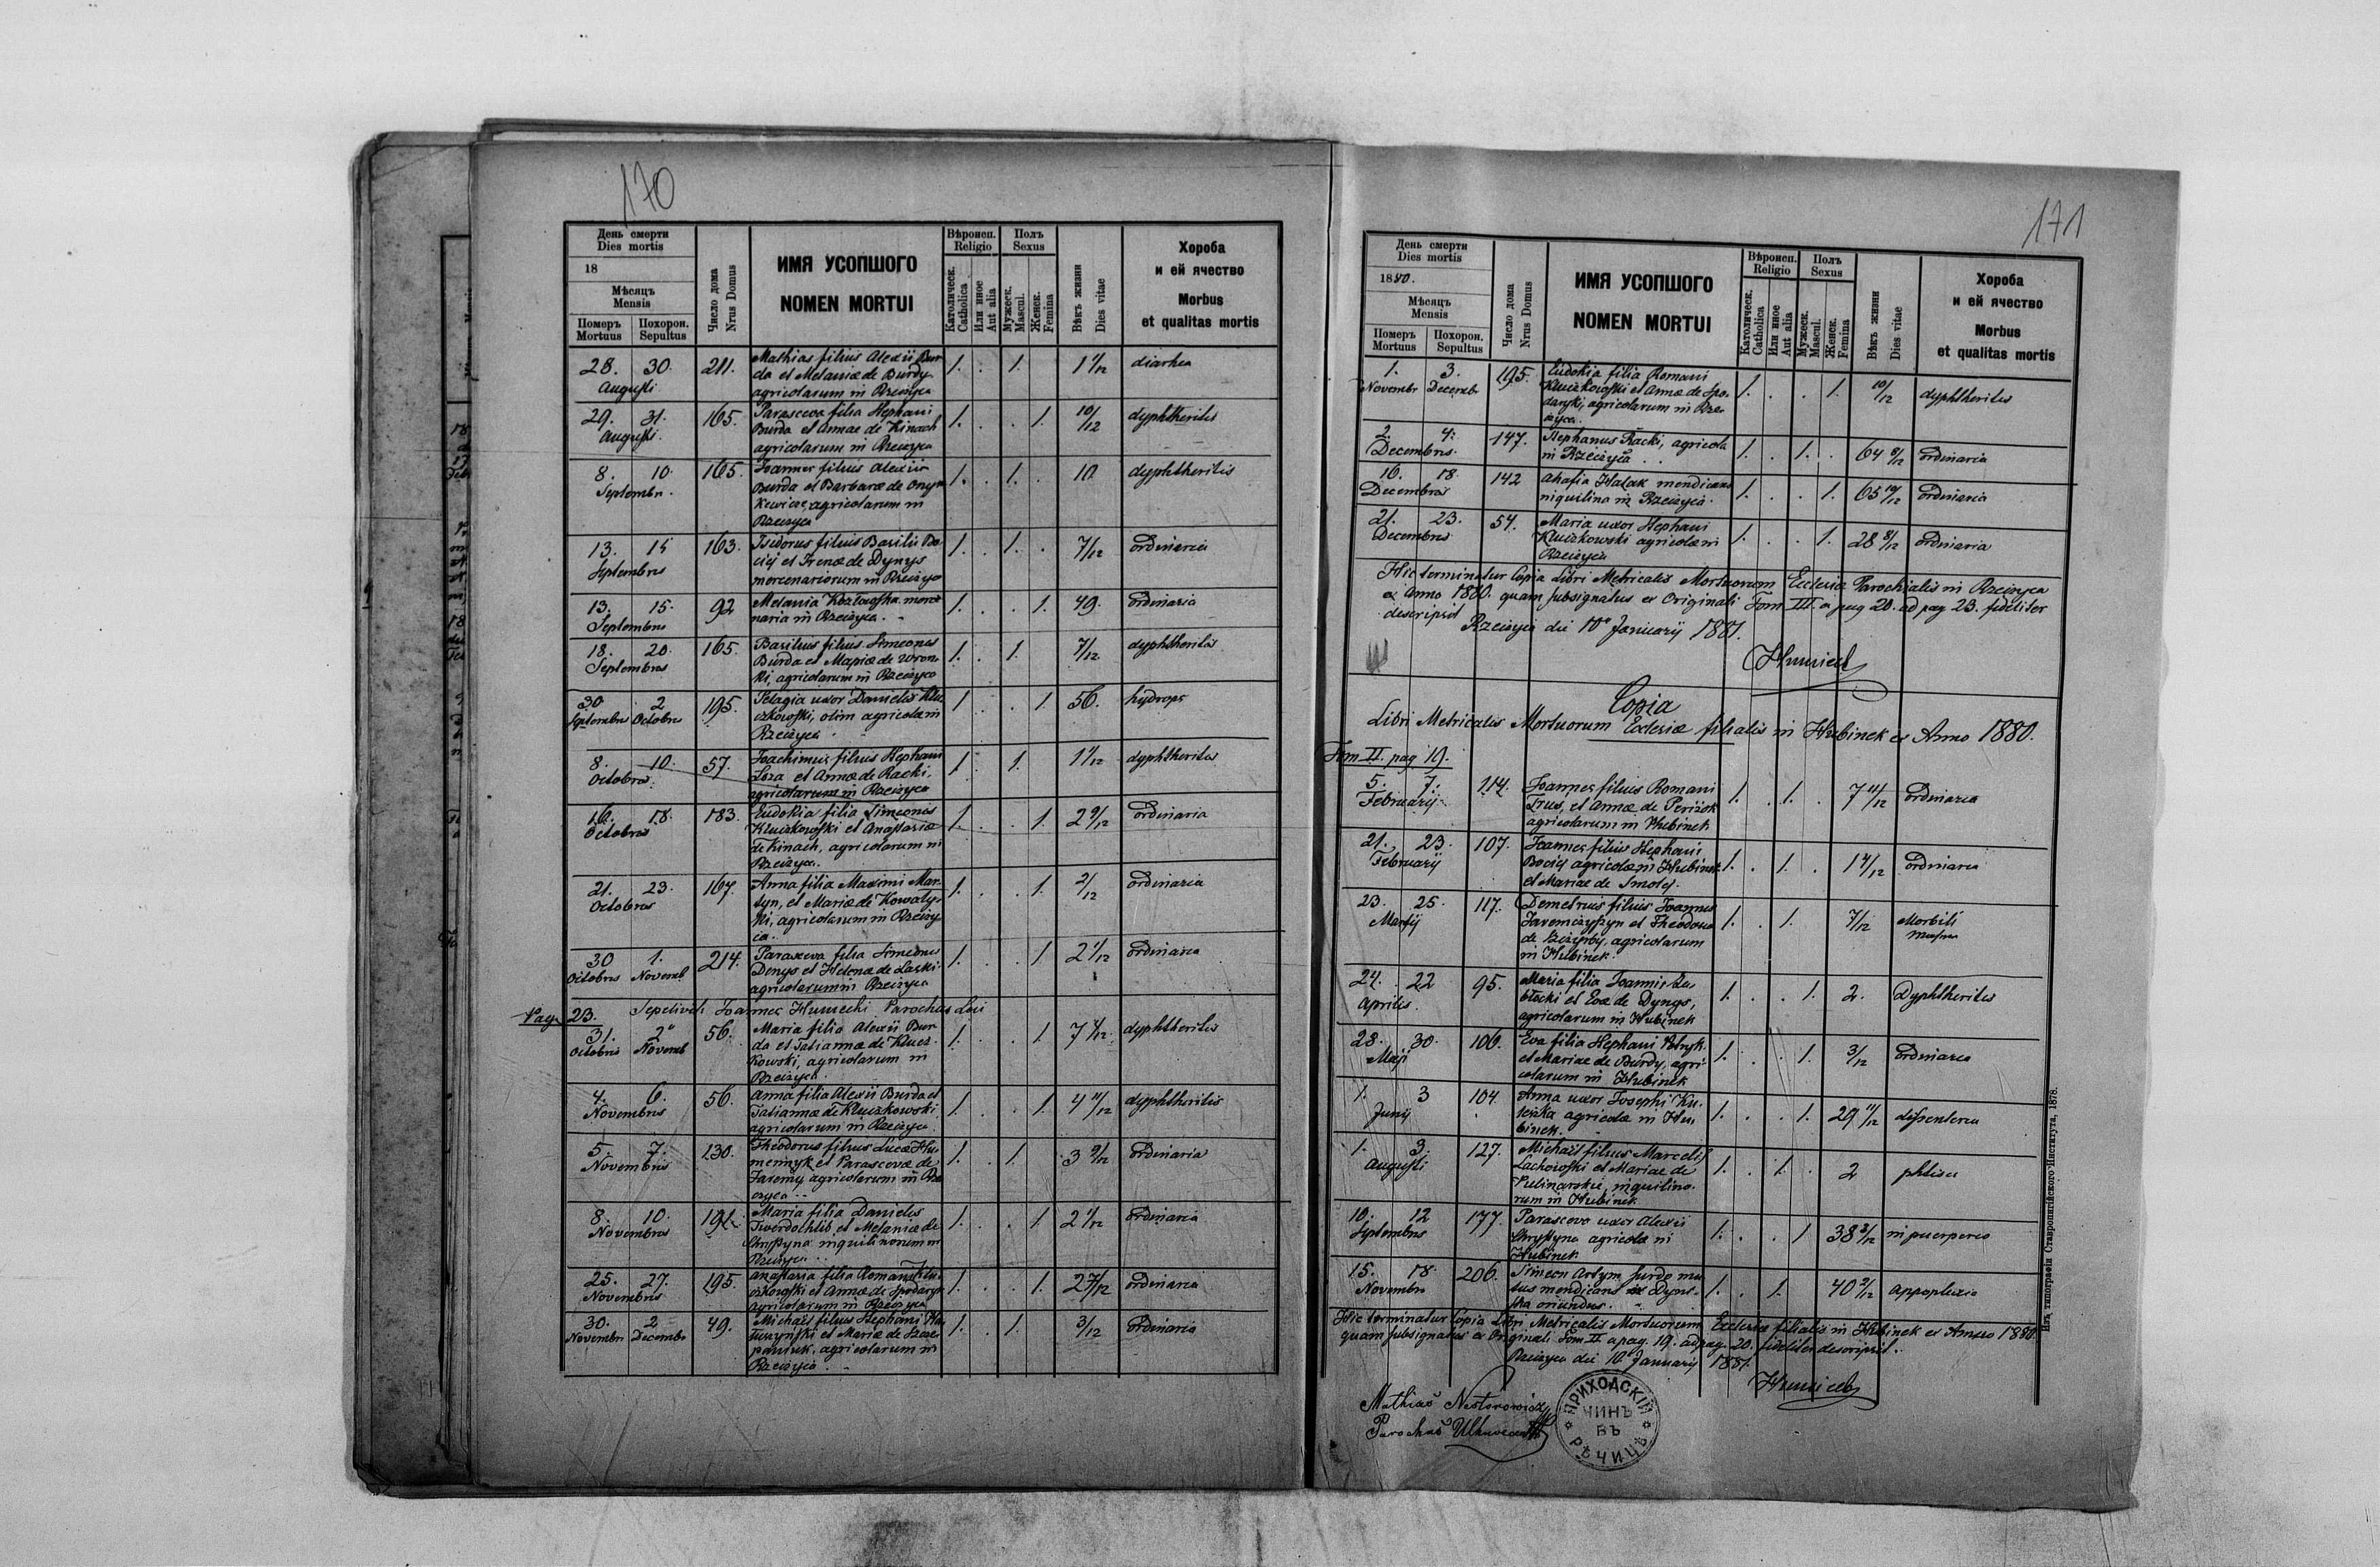 170
День смерти
Dies mortis
18
Мѣсяцъ
Mensis
Померъ Mortuus
Похорон. Sepultus
Число дома
Nrus Domus
ИМЯ УСОПШОГО
NOMEN MORTUI
Вѣроисп.
Religio
Католическ.
Catholica
Или иное
Aut alia
Полъ
Sexus
Мужеск.
Mascul.
Женск.
Femina
Вѣкъ жизни
Dies vitae
Хороба
и ей ячество
Morbus
et qualitas mortis
28. 30. 211. Mathias filius Alexii Bur- 1. . 1. 1 1/12 diarhea
Augusti da et Melaniæ de Burdy
agricolarum in Rzeczyca
29. 31. 165. Parasceva filia Stephani 1. . . 1. 10/12 dyphtheritis
Augusti. Burda et Annae de Kinach
agricolarum in Rzeczyca
8. 10. 165. Joannes filius Alexii 1. . 1. . 10 dyphtheritis
Septembri. Burda et Barbaræ de
agricolarum in
Rzeczyca
13. 15 163. Isidorus filius Basilii 1. . 1. . 7/12 ordinaria
Septembris et Irenæ de Dynys
mercenariorum in Rzeczyca
13. 15. 92 Melania Kozłowska 1. . . 1. 49. ordinaria
Septembris naria in Rzeczyca.
18. 20. 165. Basilius filius Simeonis 1. . 1. 7/12 dyphtheritis
Septembris Burda et Mariæ de Wron-
ki, agricolarum in Rzeczyca
30 2 195. Pelagia uxor Danielis Klu- 1 . . 1 56. hydrops
Septembris Octobris czkowski, olim agricolæ in
Rzeczyca
8. 10. 57. Joachimus filius Stephani 1. 1. 1 1/12 dyphtheritis
Octobris. Loza et Annæ de Racki,
agricolarum in Rzeczyca
16. 18. 183. Eudokia filia Simeonis 1. . . 1. 2 9/12 ordinaria
Octobris Kluczkowski et Anastasiæ
de Kinach, agricolarum in
Rzeczyca.
21. 23. 167. Anna filia Maximi Mar- 1. . . 1. 2/12 ordinaria
Octobris tyn, et Mariæ de Kowaly-
ki, agricolarum in Rzeczy-
ca.
30 1. 214. Parasceva filia Simeonis 1. . . 1 2 1/12 ordinaria
Octobris Novemb Denys et Helenæ de Laski
agricolarum in Rzeczyca
Pag 23. Sepelivit Joannes Humecki Parochus Loci
31. 2 56. Maria filia Alexii Bur- 1. . . 1 dyphtheritis
Octobris Novemb da et Tatiannæ de Klucz-
kowski, agricolarum in
Rzeczyca
4. 6. 56. Anna filia Alexii Burda et 1. . . 1. 4 11/12 dyphtheritis
Novembris Tatiannæ de Kluczkowski
agricolarum in Rzeczyca
5. 7. 130. Theodorus filius Lucæ Hu- 1. . 1. 3 9/12 ordinaria
Novembris mennyk et Parascevæ de
Jaremy agricolarum in Rze-
czyca
8. 10. Maria filia Danielis 1. . . 1. 2 1/12 ordinaria
Novembris Twerdochlib et Melaniæ de
Chryssyna inquilinorum in
Rzeczyca
25. 27. 195. Anastasia filia Romani Klu- 1. . . 1. 2 7/12 ordinaria
Novembris czkowski et Annæ de Spodaryk
agricolarum in Rzeczyca
30. 2 49. Michael filius Stephani 1. . 1. 3/12 ordinaria
Novembri Decembr et Mariæ de Szcze-
paniuk, agricolarum in
Rzeczyca
171
День смерти
Dies mortis
1880.
Мѣсяцъ
Mensis
Померъ Mortuus
Похорон. Sepultus
Число дома
Nrus Domus
ИМЯ УСОПШОГО
NOMEN MORTUI
Вѣроисп.
Religio
Католическ.
Catholica
Или иное
Aut alia
Полъ
Sexus
Мужеск.
Mascul.
Женск.
Femina
Вѣкъ жизни
Dies vitae
Хороба
и ей ячество
Morbus
et qualitas mortis
1. 3. 195. Eudokia filia Romani 1. . . 1. 10/12 dyphtheritis
Novembr Decemb Kluczkowski et Annæ de Spo-
daryk, agricolarum in Rze-
czyca.
2. 4. 147. Stephanus Racki, agricola 1. . 1. . 64 8/12 ordinaria
Decembris. in Rzeczyca
16. 18. 142 Ahafia Halak mendicans 1. . . 1. 65 10/12 ordinaria
Decembris inquilina in Rzeczyca.
21. 23. 54. Maria uxor Stephani 1. . . 1. 28 8/12 ordinaria
Decembris Kluczkowski agricolæ in
Rzeczyca
Hic terminatur Copia Libri Metricalis Mortuorum Ecclesiæ Parochialis in Rzeczyca
ex Anno 1880. quam subsignatus ex Originali Tom III. a pag 20. ad pag 23. fideliter
descripsit
Rzeczyca die 10 Januarij 1881.
Humecki
Copia
Libri Metricalis Mortuorum Ecclesiæ filialis in Hubinek ex Anno 1880.
Tom II. pag 19.
5. 7. 114. Joannes filius Romani 1. . 1. . 7 11/12 ordinaria
Februarij et Annæ de
agricolarum in Hubinek
21. 23. 107. Joannes filius Stephani 1. . 1. . ordinaria
Februarij agricolæ in Hubinek
et Mariae de Smolij.
23. 25. 117. Demetrius filius Joannis 1. . 1. 7/12 Morbili
Martij Jaremczyszyn et Theodosiæ
de agricolarum
in Hubinek.
24. 22 95. Maria filia Joannis 1. . . 1. 2. Dyphtheritis
Aprilis. et Evæ de Dynys,
agricolarum in Hubinek
28. 30. 106. Eva filia Stephani 1. . . 1. 3/12 ordinaria
Maji et Mariae de Burdy, agri-
colarum in Hubinek
1. 3 104. Anna uxor Josephi Ku- 1. . . 1. 29 11/12 dissenteria
Junij agricolæ in Hu-
binek.
1. 3. 127. Michaël filius Marceli 1. . 1. 2 phtisis
Augusti Lachowski et Mariae de
inquilino-
rum in Hubinek
10. 12 177. Parasceva uxor Alexii 1. . . 1 38 in puerperio
Septembris Chryssyna agricolæ in
Hubinek
15. 18 206. Simeon Artym surdo mu- 1. . 1. 40 appoplexia
Novembri tus mendicans ex
oriundus.
Hic terminatur Copia Libri Metricalis Mortuorum Ecclesiæ filialis in Hubinek ex Anno 1880.
quam subsignatus ex Originali Tom II. a pag. 19. ad pag. 20. fideliter descripsit.
Rzeczyca die 10 Januarij 1881.
Humecki
Mathias Nestorowicz
Parochus
ПРИХОДСКІЙ ЧИНЪ ВЪ РѢЧИЦѢ
Изъ типографіи Ставропигійского Института, 1878.